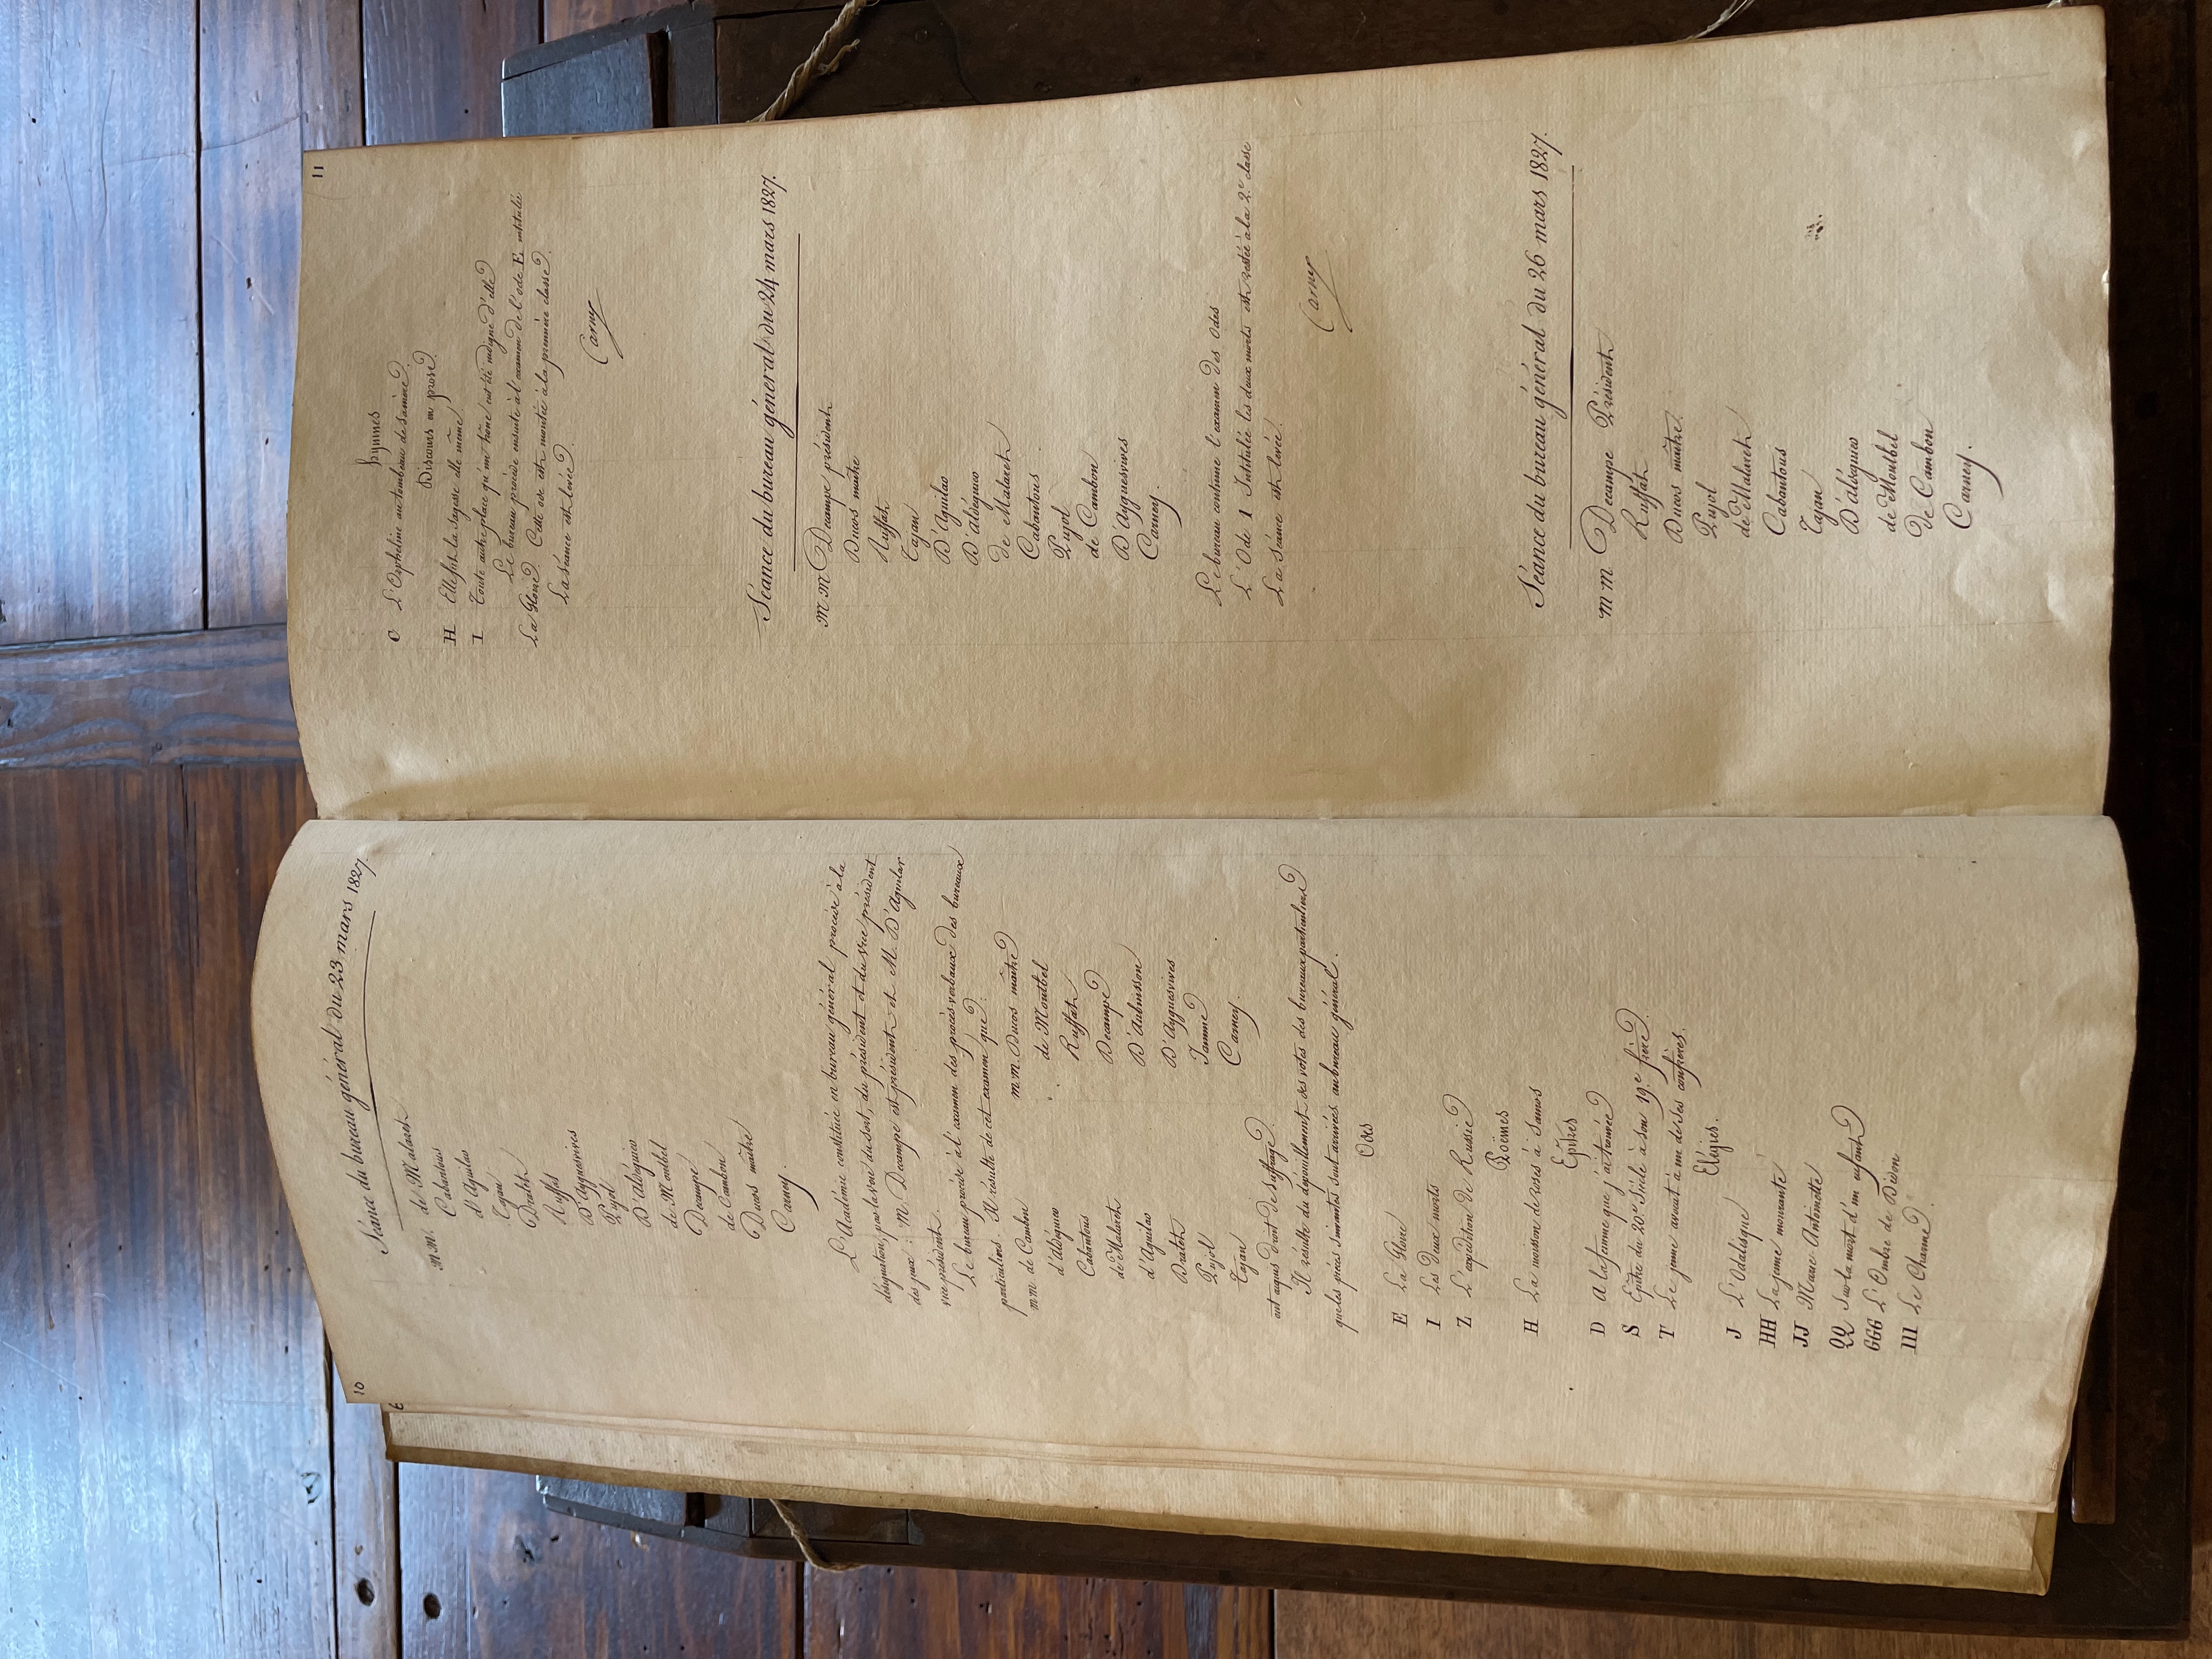 10
Séance du bureau général du 23 mars 1827.
m.m. de Malaret
Cabantous
d'Aguilar
Tajan
Dralet
Ruffat
D'Ayguesvives
Pujol
D'aldéguier
de Montbel
Decampe
de Cambon
Ducos maître
Carney.
L'Académie constituée en bureau général procède à la
désignation, par la voie du sort, du président et du vice président
des jeux : M. Decampe est président et M. D'Aguilar
vice président.
Le bureau procède à l'examen des procès verbaux des bureaux
particuliers. Il résulte de cet examen que
m.m. de Cambon
d'aldéguier
Cabantous
de Malaret
d'Aguilar
Dralet
Pujol
Tajan
m.m. Ducos maître
de Montbel
Ruffat
Decampe
D'Aubuisson
D'Ayguesvives
Jamme
Carney.
ont acquis droit de suffrage.
Il résulte du dépouillement des votes des bureaux particuliers
que les pièces suivantes sont arrivées au bureau général.
Odes
E La Gloire
I Les Deux morts
Z L'expédition de Russie
Poëmes
H La moisson de roses à Samos
Epitres
D A la femme que j'ai trouvée
S Epitre du 20e Siècle à son 19e frère.
T Le jeune avocat à un de ses confrères.
Elégies.
J L'Odalisque
HH La jeune mourante
JJ Marie Antoinette
QQ Sur la mort d'un enfant
GGG L'Ombre de Bidon
III Le Charme.
11
hymnes
C L'Orpheline au tombeau de sa mère.
Discours en prose
H Elle fut la Sagesse elle même.
I Toute autre place qu'un trône eut été indigne d'elle
Le bureau procède ensuite à l'examen de l'ode E, intitulée
La Gloire. Cette ode est montée à la première classe.
La Séance est levée.
Carney
Séance du bureau général du 24 mars 1827.
m m Decampe président
Ducos maître
Ruffat
Tajan
D'Aguilar
D'aldéguier
de Malaret
Cabantous
Pujol
de Cambon
D'Ayguesvives
Carney.
Le bureau continue l'examen des Odes
L'Ode I Intitulée les deux morts est restée à la 2e classe
La Séance est levée.
Carney
Séance du bureau général du 26 mars 1827.
m m Decampe Président
Ruffat
Ducos maître
Pujol
de Malaret
Cabantous
Tajan
D'aldéguier
de Montbel
de Cambon
Carney.